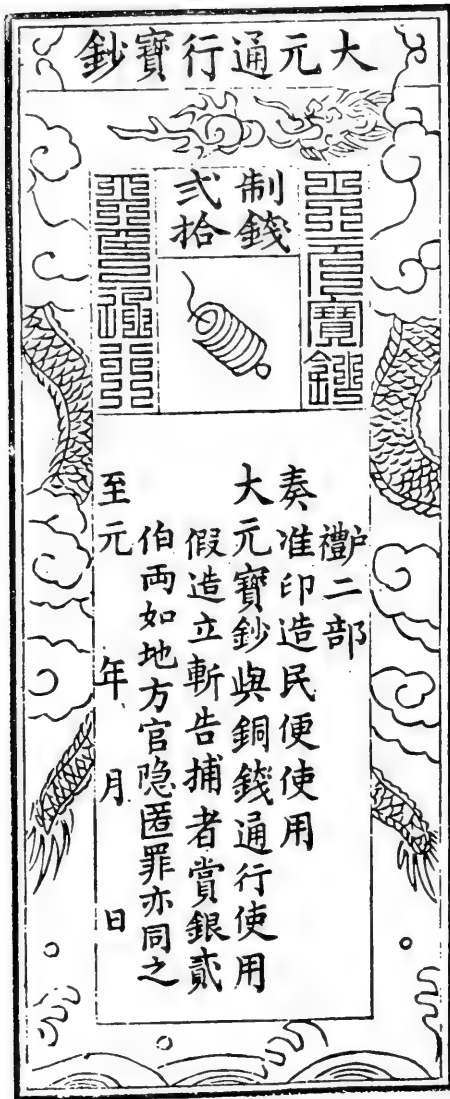 大元通行寶鈔
制錢
弍拾
户禮二部
奏准印造民便使用
大元寶鈔與銅錢通行使用
假造立斬告捕者賞銀貳
伯両如地方官隐匿罪亦同之
至元 年 月 日